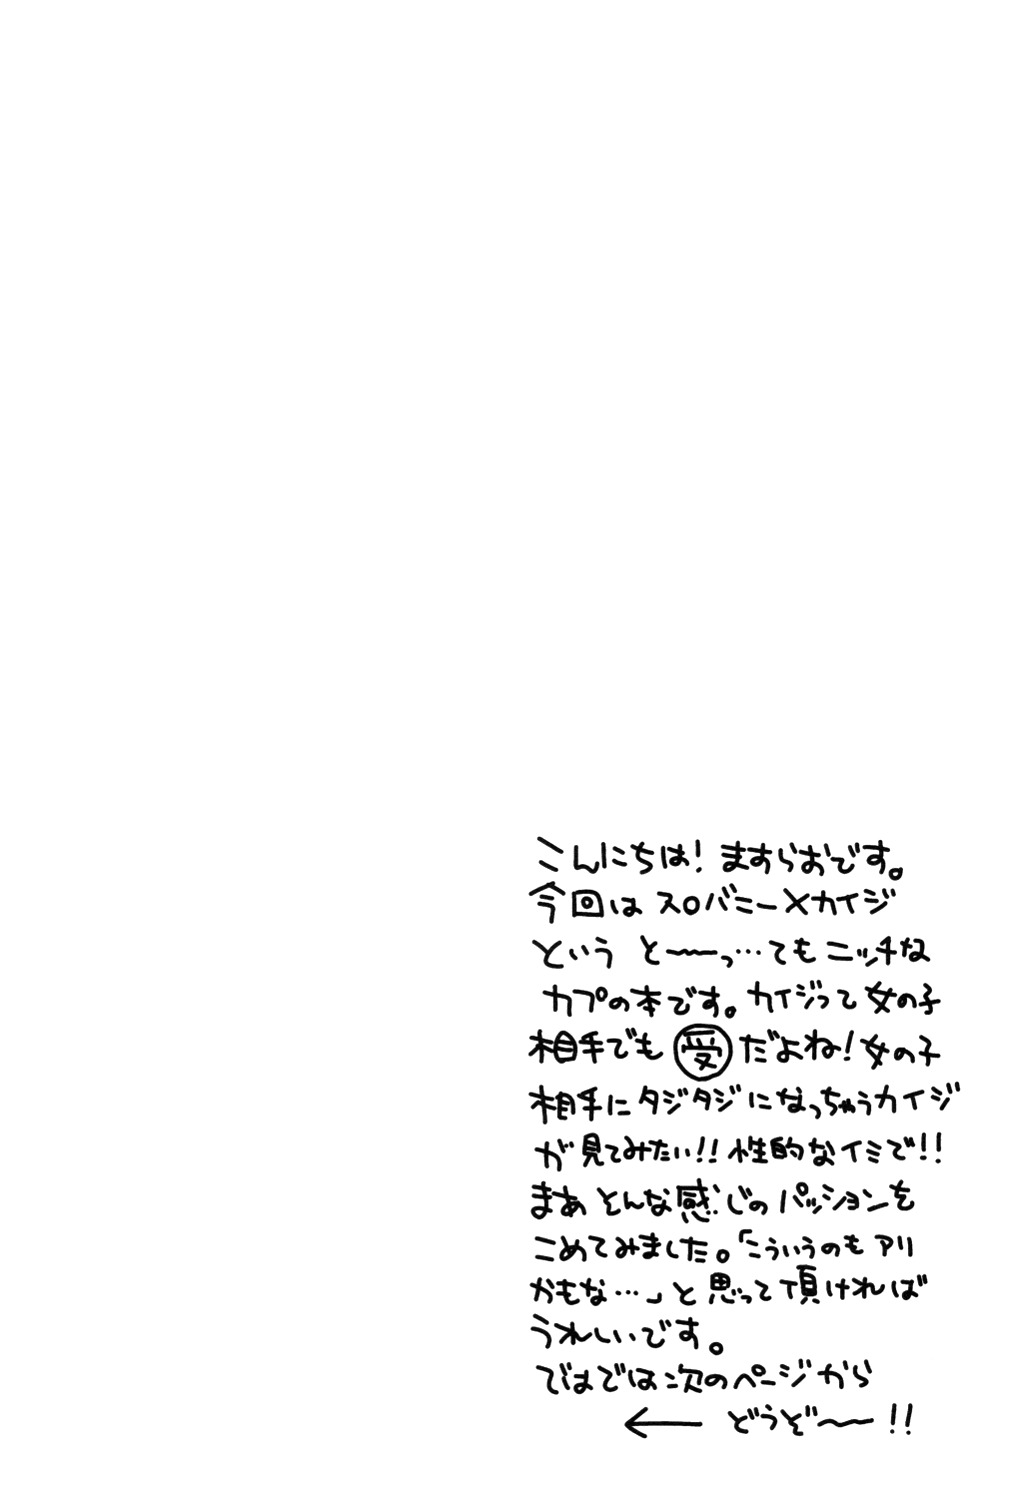 こんにちは！ますらおです。
今回は スロバニー×カイジ
という と〜〜っ…ても ニッチな
カプの本です。カイジって女の子
相手でも 受 だよね！女の子
相手にタジタジになっちゃうカイジ
が見てみたい！！性的なイミで！！
まあ そんな感じのパッションを
こめてみました。「こういうのも アリ
かもな…」と思って頂ければ
うれしいです。
ではでは次のページから
← どうぞ〜〜！！